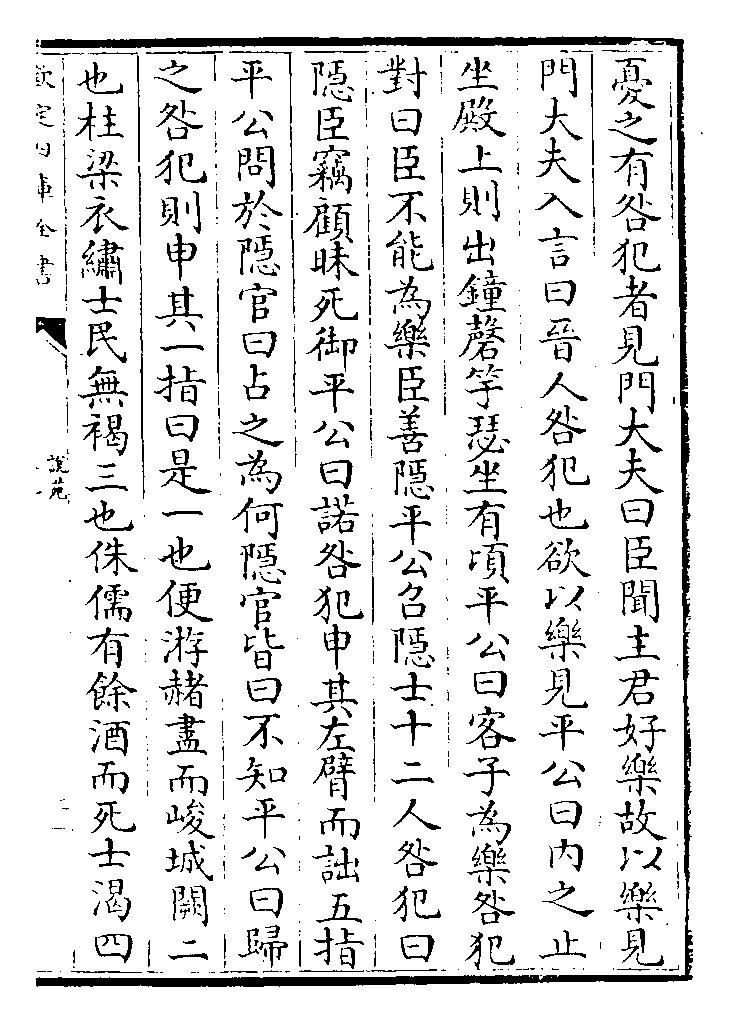 憂之有咎犯者見門大夫曰臣聞主君好樂故以樂見
門大夫入言曰晉人咎犯也欲以樂見平公曰內之止
坐殿上則出鐘磬竽瑟坐有頃平公曰客子為樂咎犯
對曰臣不能為樂臣善隱平公召隱士十二人咎犯曰
隱臣竊顧昧死御平公曰諾咎犯申其左臂而詘五指
平公問於隱官曰占之為何隱官皆曰不知平公曰歸
之咎犯則申其一指曰是一也便游赭盡而峻城闕二
也柱梁衣繡士民無褐三也侏儒有餘酒而死士渴四
欽定四庫全書
說苑